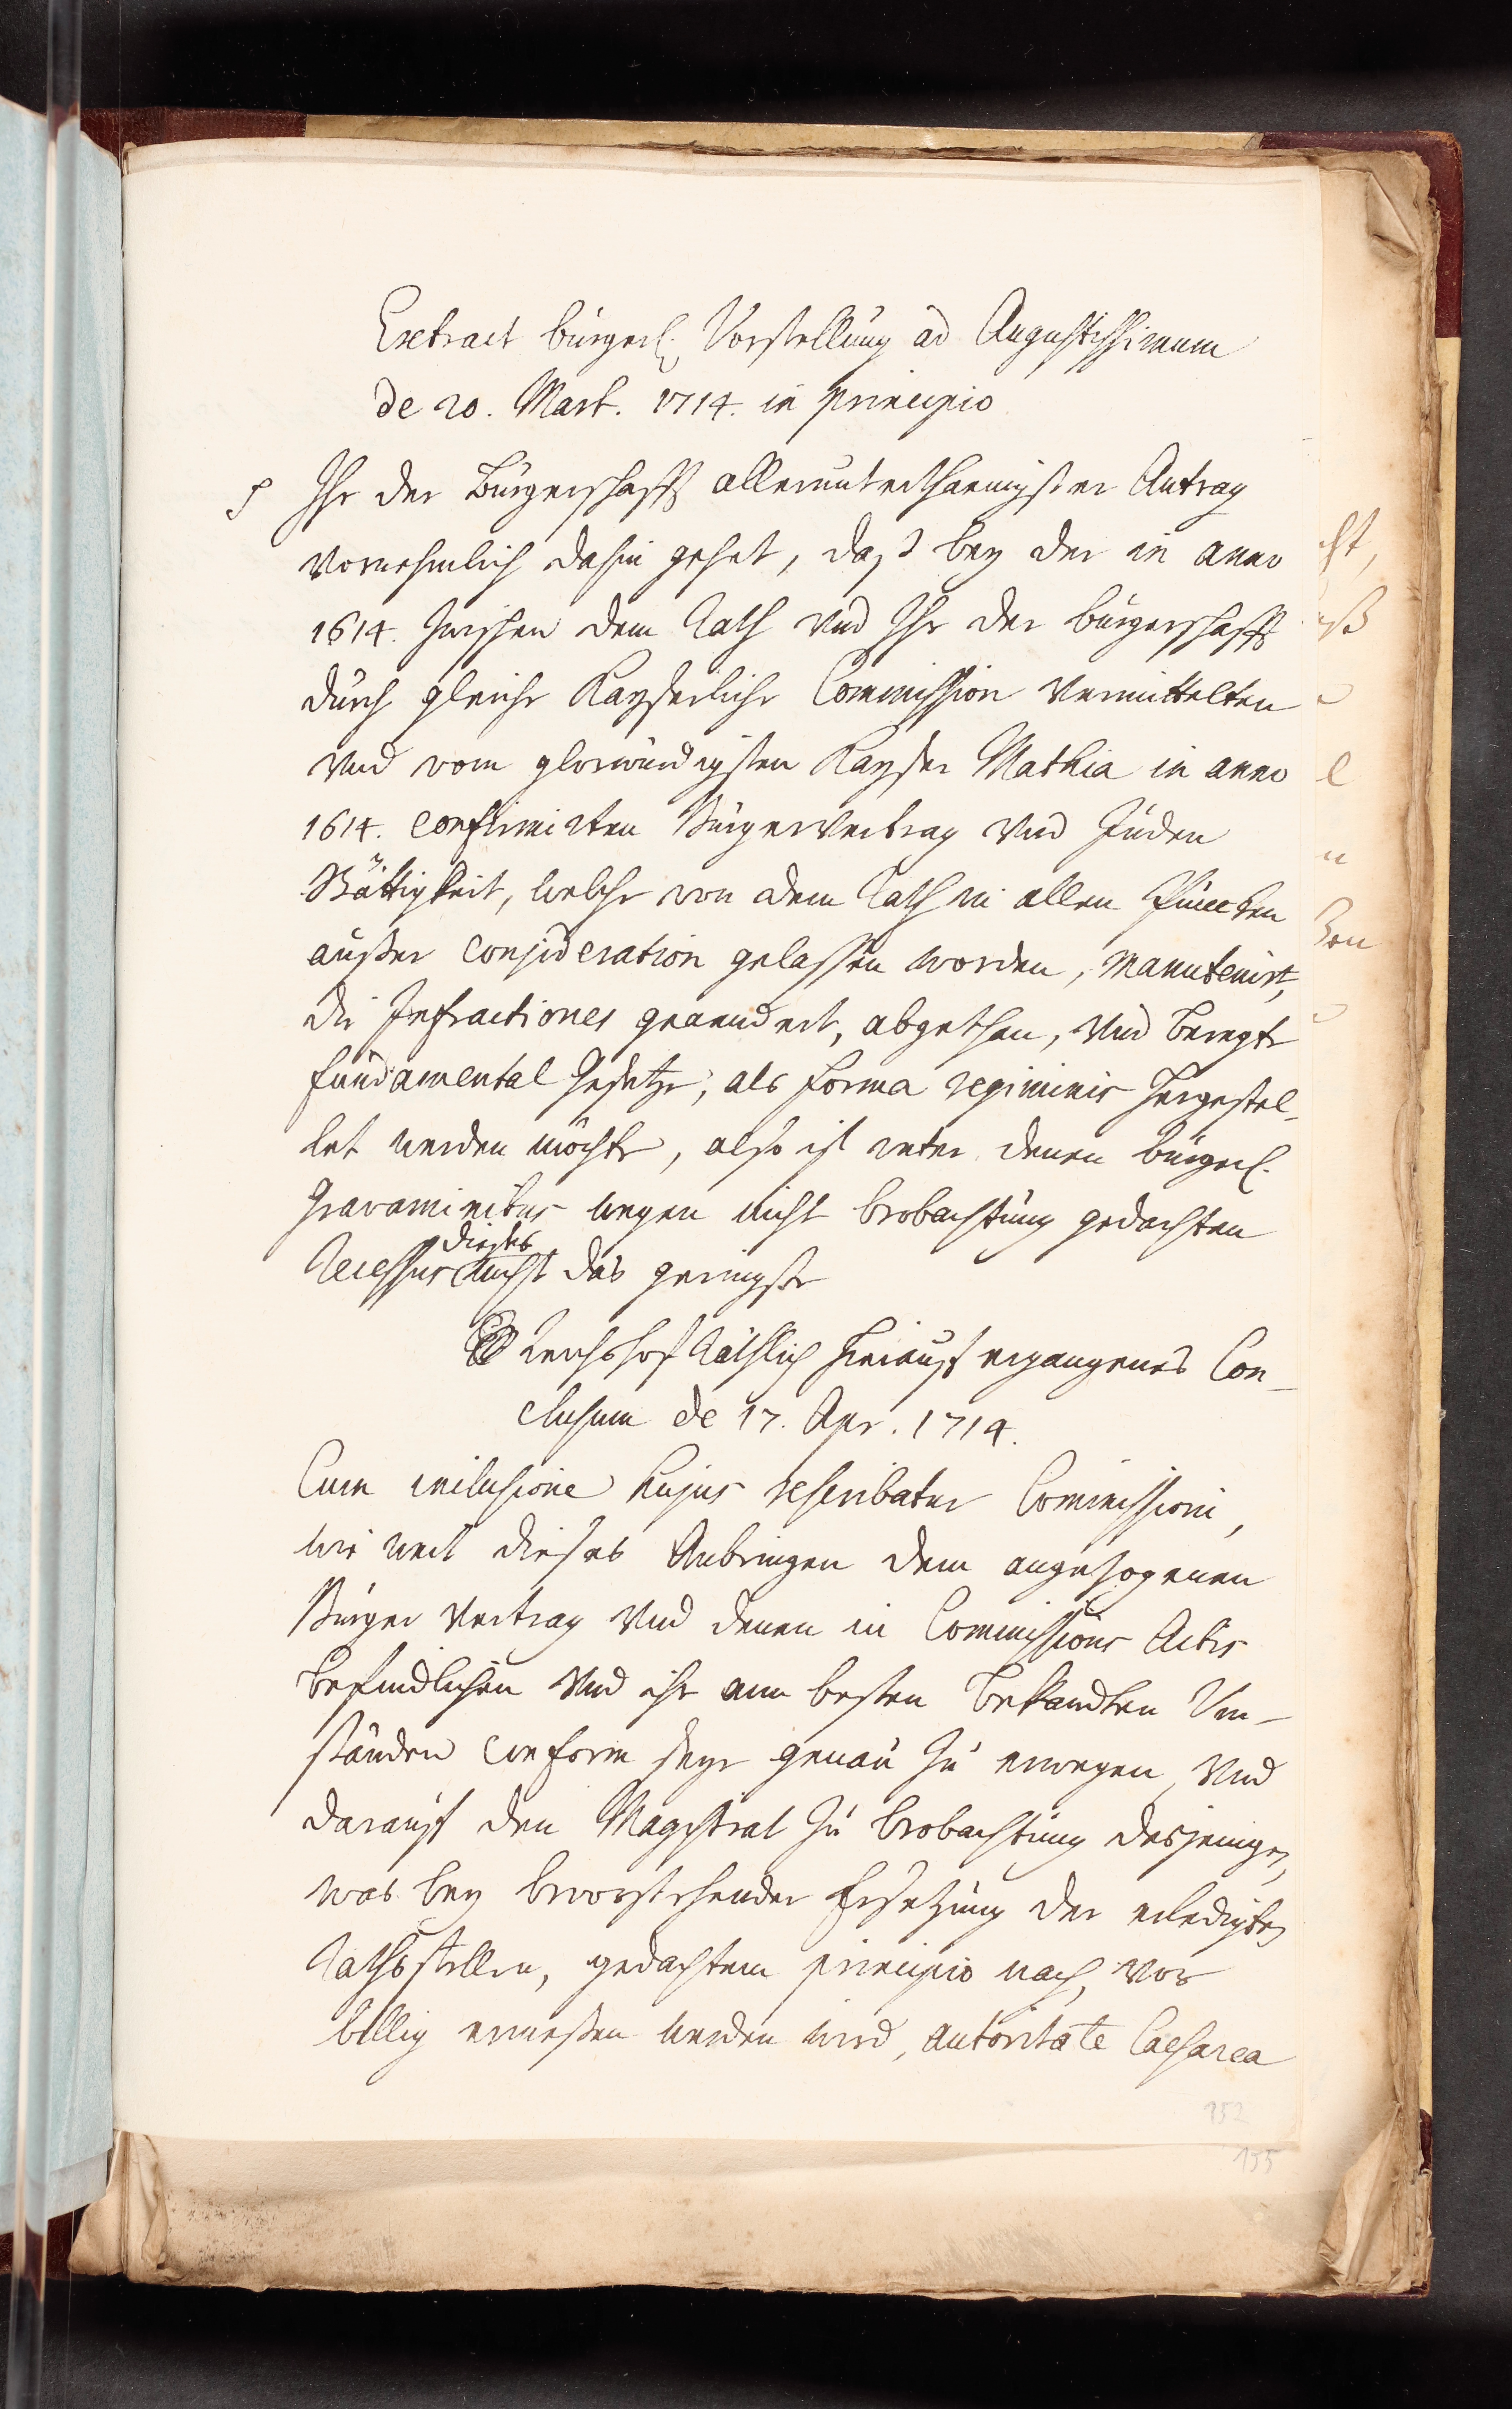 Extract bürgerl. Vorstellung ad Augustissimum
de 20. Mart. 1714. in principio
Ihr der Bürgerschafft allerunterthaenigster Antrag
vornehmlich dahin gehet, daß bey der in anno
1614. zwischen dem Rath und Ihr der bürgerschafft
durch gleiche Kayserliche Commission vermittelten
und vom glorwürdigsten Kayser Mathia in anno
1614. confirmirten Bürgervertrag und Juden
Stättigkeit, welche von dem Rath in allen Puncten
außer consideration gelassen worden, manutenirt,
die Infractiones geaendert, abgethan, und beregte
fundamental Gesetze, als forma regiminis hergestel-
let werden möchte, also ist unter denen bürgerl.
Gravaminibus wegen nicht beobachtung gedachten
dieses
Recessus nicht das geringste
Reichshof Räthlich hierauf ergangenes Con-
clusum de 17. Apr. 1714.
Cum inclusione hujus rescribatur Commissioni,
wie weit dieses Anbringen dem angezogenen
Bürger Vertrag und denen in Commissions Actis
befindlichen und ihr am besten bekandten Um-
ständen conform seye genau zu erwegen, und
darauf den Magistrat zu beobachtung desjenigen,
was bey bevorstehender Ersetzung der erledigten
Rathsstellen, gedachtem principio nach, vor
billig ermeßen werden wird, autoritate Caesarea
152
155